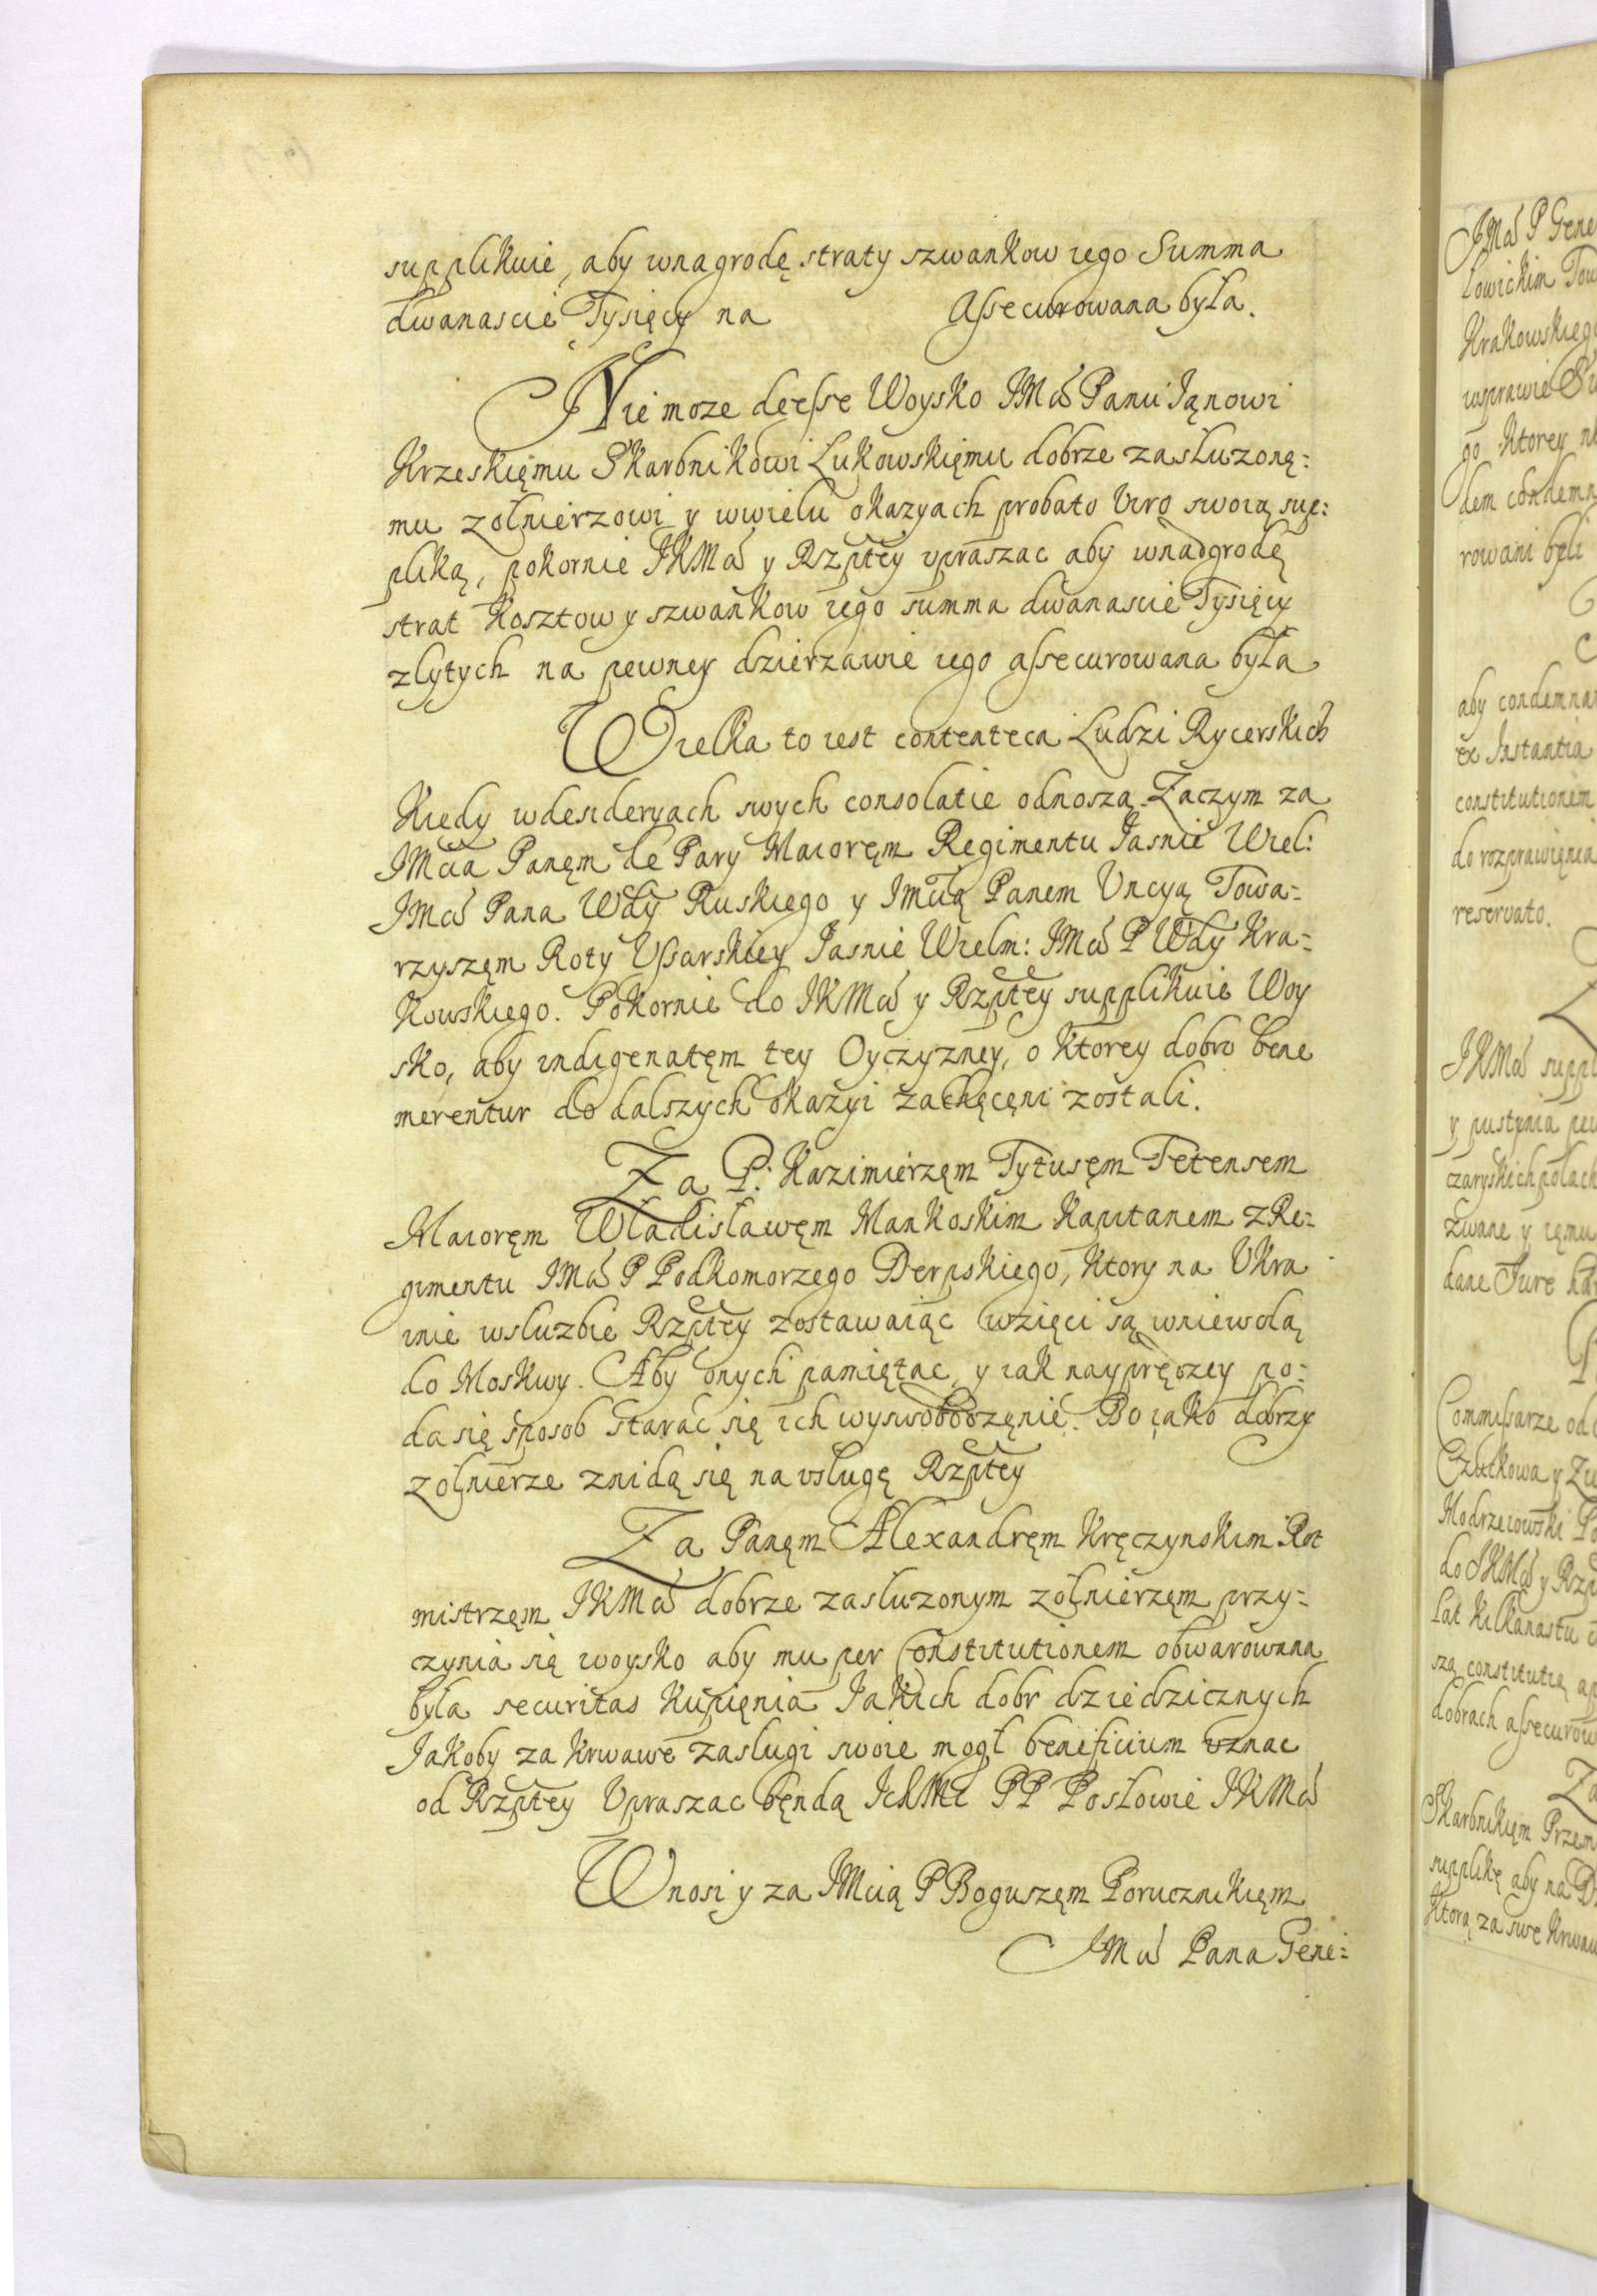 supplikuie, aby wnagrodę straty szwankow iego Summa
dwanascie Tysięcy na Assecurowana była.
Nie moze deesse Woysko JMći Panu Janowi
Krzeskięmu Skarbnikowi Łukowskięmu dobrze zasłuzonę:
mu zołnierzowi y wwielu okazyach probato Viro swoią sup:
pliką, pokornie JKMći y Rzptey vpraszac aby wnadgrodę
strat Kosztow y szwankow iego summa dwanascie Tysięcy
złytych na pewney dzierzawie iego assecurowana była
Wielka to iest contenteca Ludzi Rycerskich
Kiedy wdesideryach swych consolatie odnoszą. Zaczym za
JMcia Panęm de Pary Maioręm Regimentu Jasnie Wiel:
JMći Pana Wdy Ruskiego y Jmcią Panem Uncyą Towa=
rzyszęm Roty Vssarskiey Jasnie Wielm: JMći P Wdy Kra=
Kowskiego. Pokornie do JKMći y Rzptey supplikuie Woy
sko, aby indigenatęm tey Oyczyzney, o Ktorey dobro bene
merentur do dalszych okazyi zachęcęni zostali.
Za P: Kazimierzęm Tytusęm Tetensem
Maioręm Władisławęm Mankoskim Kapitanem z Re=
gimentu JMći P Podkomorzego Derpskiego, Ktory na Vkra
inie wsłuzbie Rzptey zostawaiąc wzięci są wniewolą
do Moskwy. Aby onych pamiętac, y iak nayprędzey po=
da się sposob starac się ich wyswobodzęnie. Bo iako dobrzy
zołnierze znidą się na vsługę Rzptey
Za Panęm Alexandręm Kręczynskim Rot
mistrzęm JKMći dobrze zasłuzonym zołnierzęm przy=
czynia się woysko aby mu per Constitutionem obwarowana
była securitas Kupięnia Jakich dobr dziedzicznych
Jakoby za Krwawe zasługi swoie mogł beneficium vznac
od Rzptey Vpraszac będą IchMć PP Posłowie JKMći
Wnosi y za JMcią P Boguszęm Porucznikięm
JMći Pana Gene=
JMći P Gene
Łowickim Tow
Krakowskiego
wsprawie
go Ktorey
dem condemn
rowani byli
aby condemna
ex Instantia
constitutionem
do rozprawięnia
reservato.
JKMći suppl
y pustynia
czaryskich polach
zwane y ięmu
dane Jure
Commissarze od
y
Modrzeiowski
do JKMći y Rzp
lat Kilkanastu
szą constitutią
dobrach assecurow
Za
Skarbnikięm Przem
supplikę aby na
Ktorą za swe Krwaw